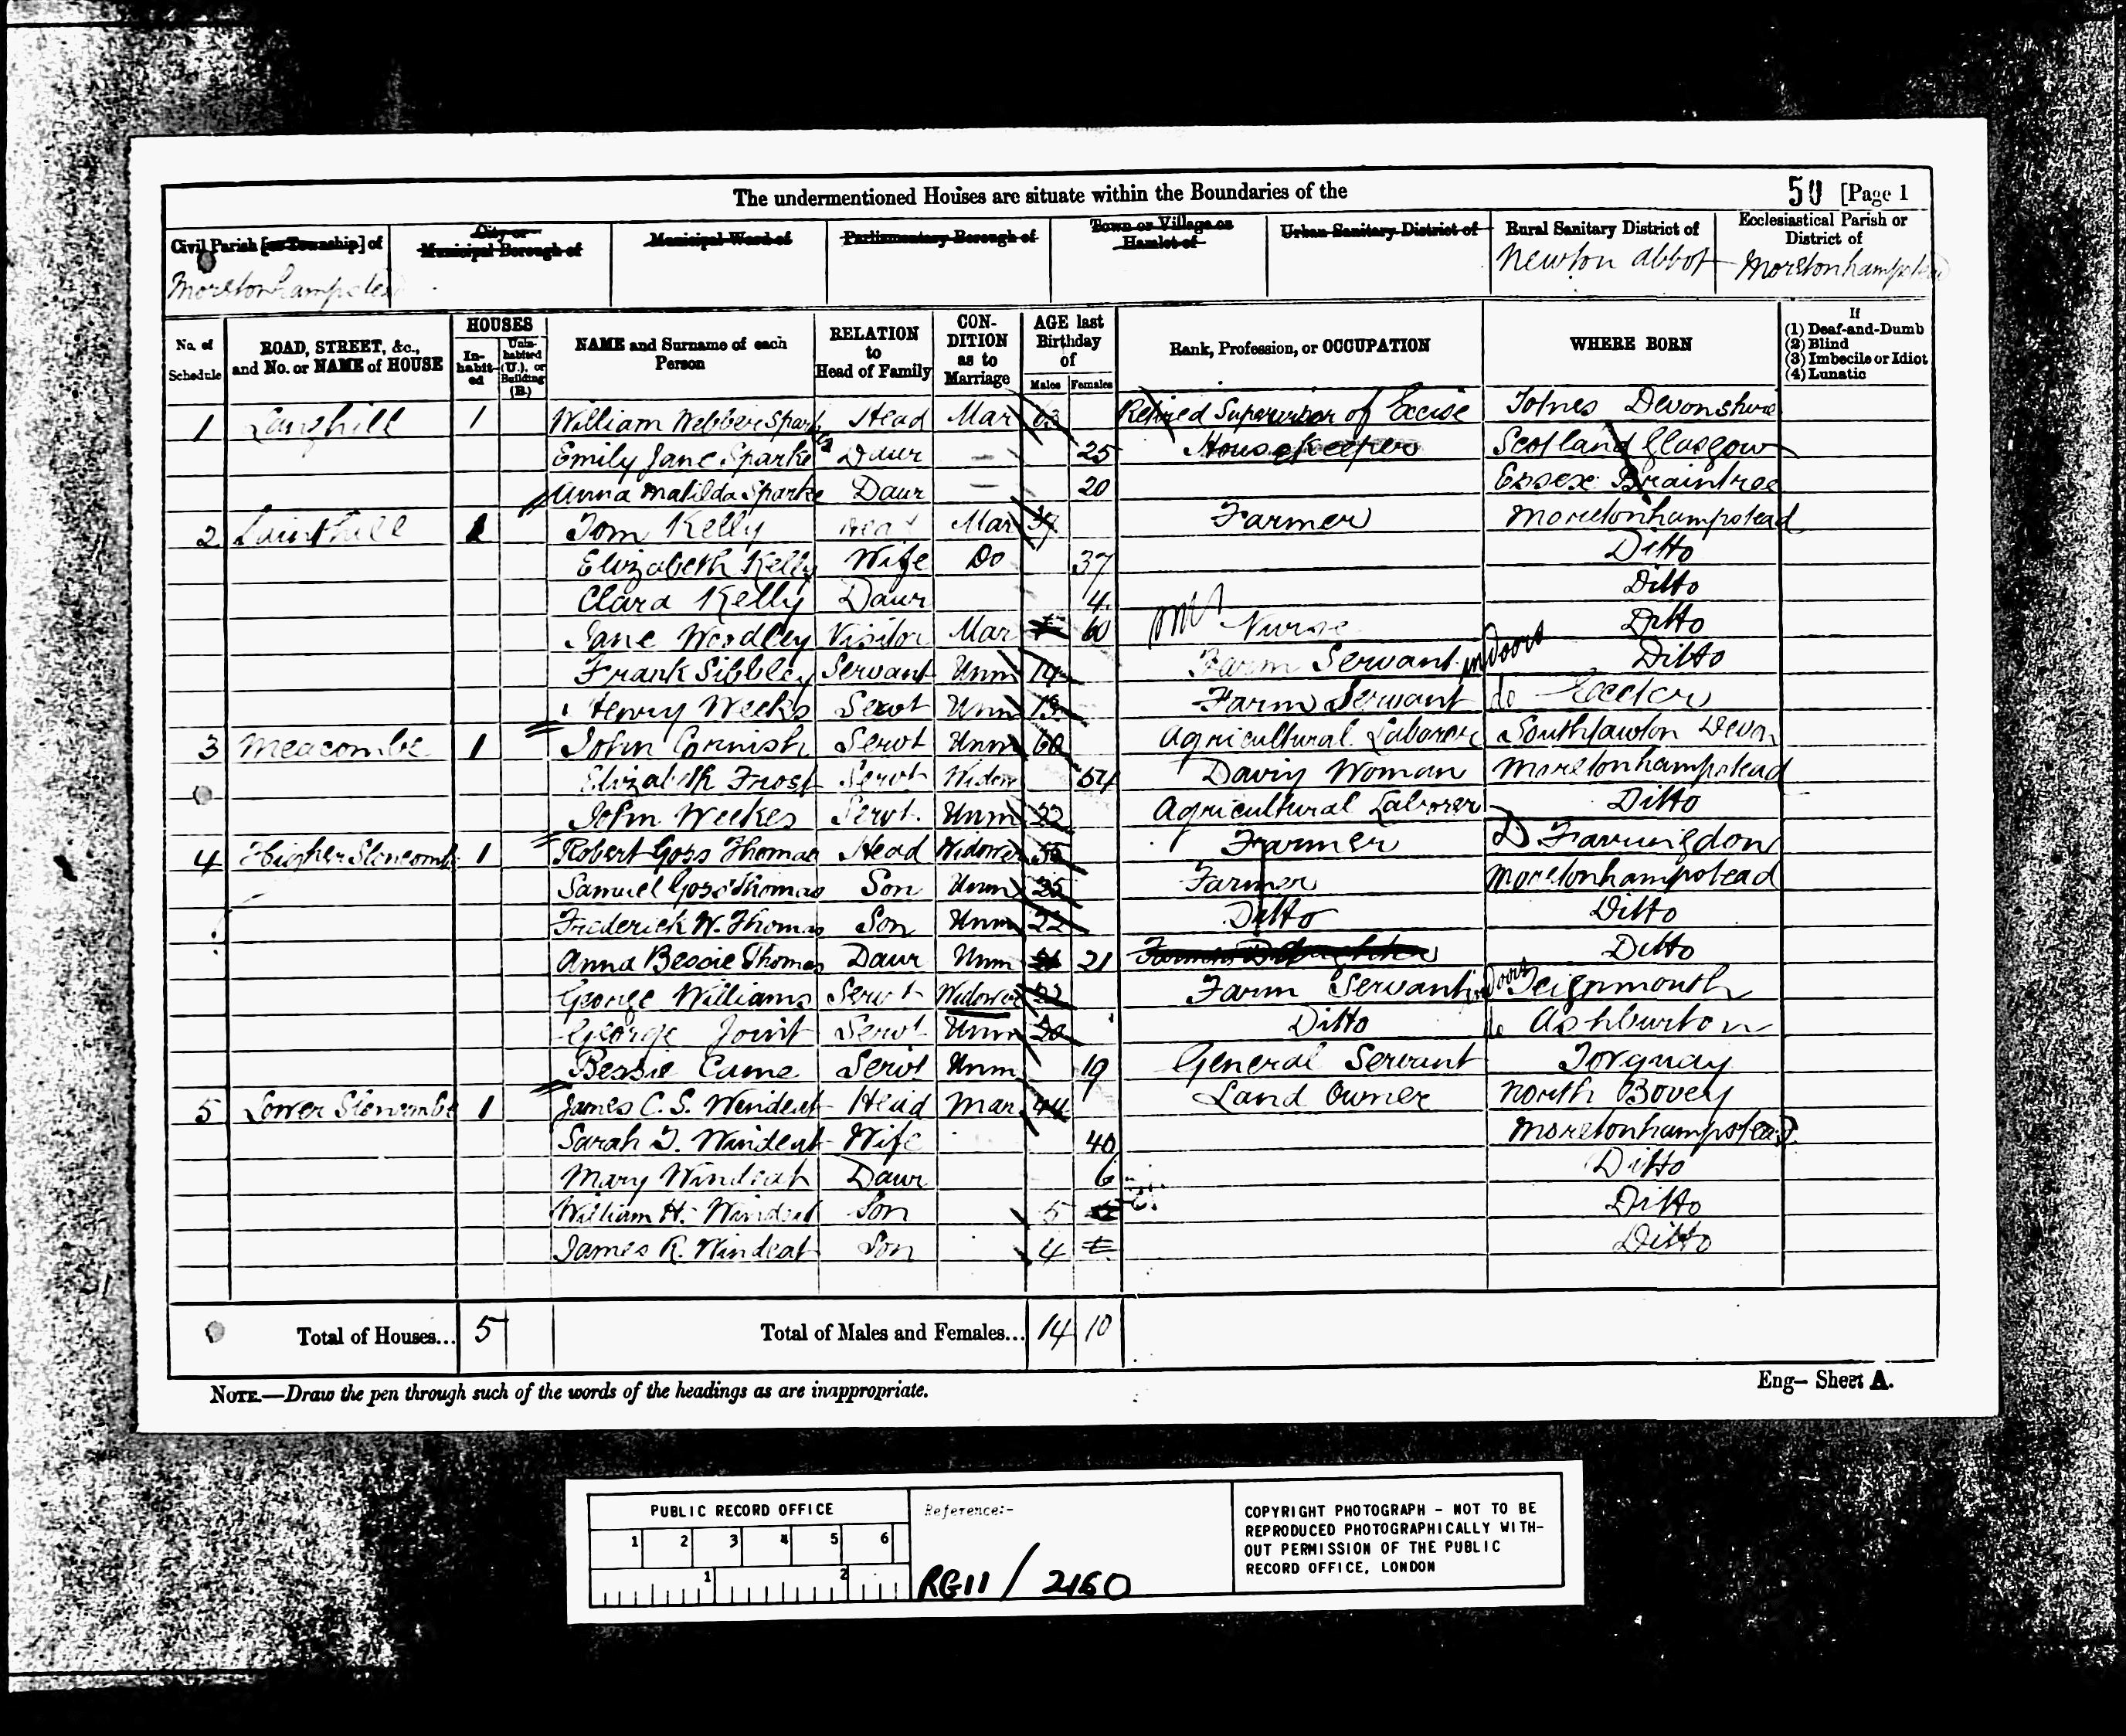 The undermentioned Houses are situate within the Boundaries of the
50 [Page 1
Civil Parish [or Township] of
City or Municipal Borough of
Municipal Ward of
Parliamentary Borough of
Town or Village or Hamlet of
Urban Sanitary District of
Rural Sanitary District of
Ecclesiastical Parish or District of
Moretonhampstead Newton Abbot Moretonhampstead
No. of Schedule
ROAD, STREET, &c., and No. or NAME of HOUSE
HOUSES
In-habit-ed
Unin-habited (U.), or Building (B.)
NAME and Surname of each Person
RELATION to Head of Family
CON-DITION as to Marriage
AGE last Birthday of
Males Females
Rank, Profession, or OCCUPATION
WHERE BORN
If
(1) Deaf-and-Dumb
(2) Blind
(3) Imbecile or Idiot
(4) Lunatic
1 1 William Webber Sparke Head Mar 63 Retired Supervisor of Excise Totnes Devonshire
Emily Jane Sparke Daur — 25 Housekeeper Scotland Glasgow
Anna Matilda Sparke Daur — 20 Essex Braintree
2 1 Tom Kelly Head Mar 37 Farmer Moretonhampstead
Elizabeth Kelly Wife Do 37 Ditto
Clara Kelly Daur 4 Ditto
Jane Woodley Visitor Mar 60 Nurse Ditto
Frank Sibbley Servant Unm Farm Servant indoors Ditto
Henry Weeks Servt Unm Farm Servant do Exeter
3 Meacombe 1 John Cornish Servt Unm 60 Agricultural Laborer Southtawton Devon
Elizabeth Frost Servt Widow 54 Dairy Woman Moretonhampstead
John Weekes Servt. Unm 22 Agricultural Laborer Ditto
4 Higher Sloncombe 1 Robert Goss Thomas Head Widower 55 Farmer D Farringdon
Samuel Goss Thomas Son Unm 25 Farmer Moretonhampstead
Frederick W. Thomas Son Unm 22 Ditto Ditto
Anna Bessie Thomas Daur Unm 21 Farmers Daughter Ditto
George Williams Servt Widower 22 Farm Servant indoors Teignmouth
George Joint Servt Unm 20 Ditto do Ashburton
Bessie Came Servt Unm 19 General Servant Torquay
5 Lower Sloncombe 1 James C. S. Windeat Head Mar 44 Land Owner North Bovey
Sarah T. Windeat Wife 40 Moretonhampstead
Mary Windeat Daur 6 Ditto
William H. Windeat Son 5 Ditto
James R. Windeat Son 4 Ditto
Total of Houses... 5 Total of Males and Females... 14 10
NOTE.—Draw the pen through such of the words of the headings as are inappropriate.
Eng— Sheet A.
PUBLIC RECORD OFFICE
1 2 3 4 5 6
1 2
Reference:-
RG11 / 2160
COPYRIGHT PHOTOGRAPH - NOT TO BE
REPRODUCED PHOTOGRAPHICALLY WITH-
OUT PERMISSION OF THE PUBLIC
RECORD OFFICE, LONDON